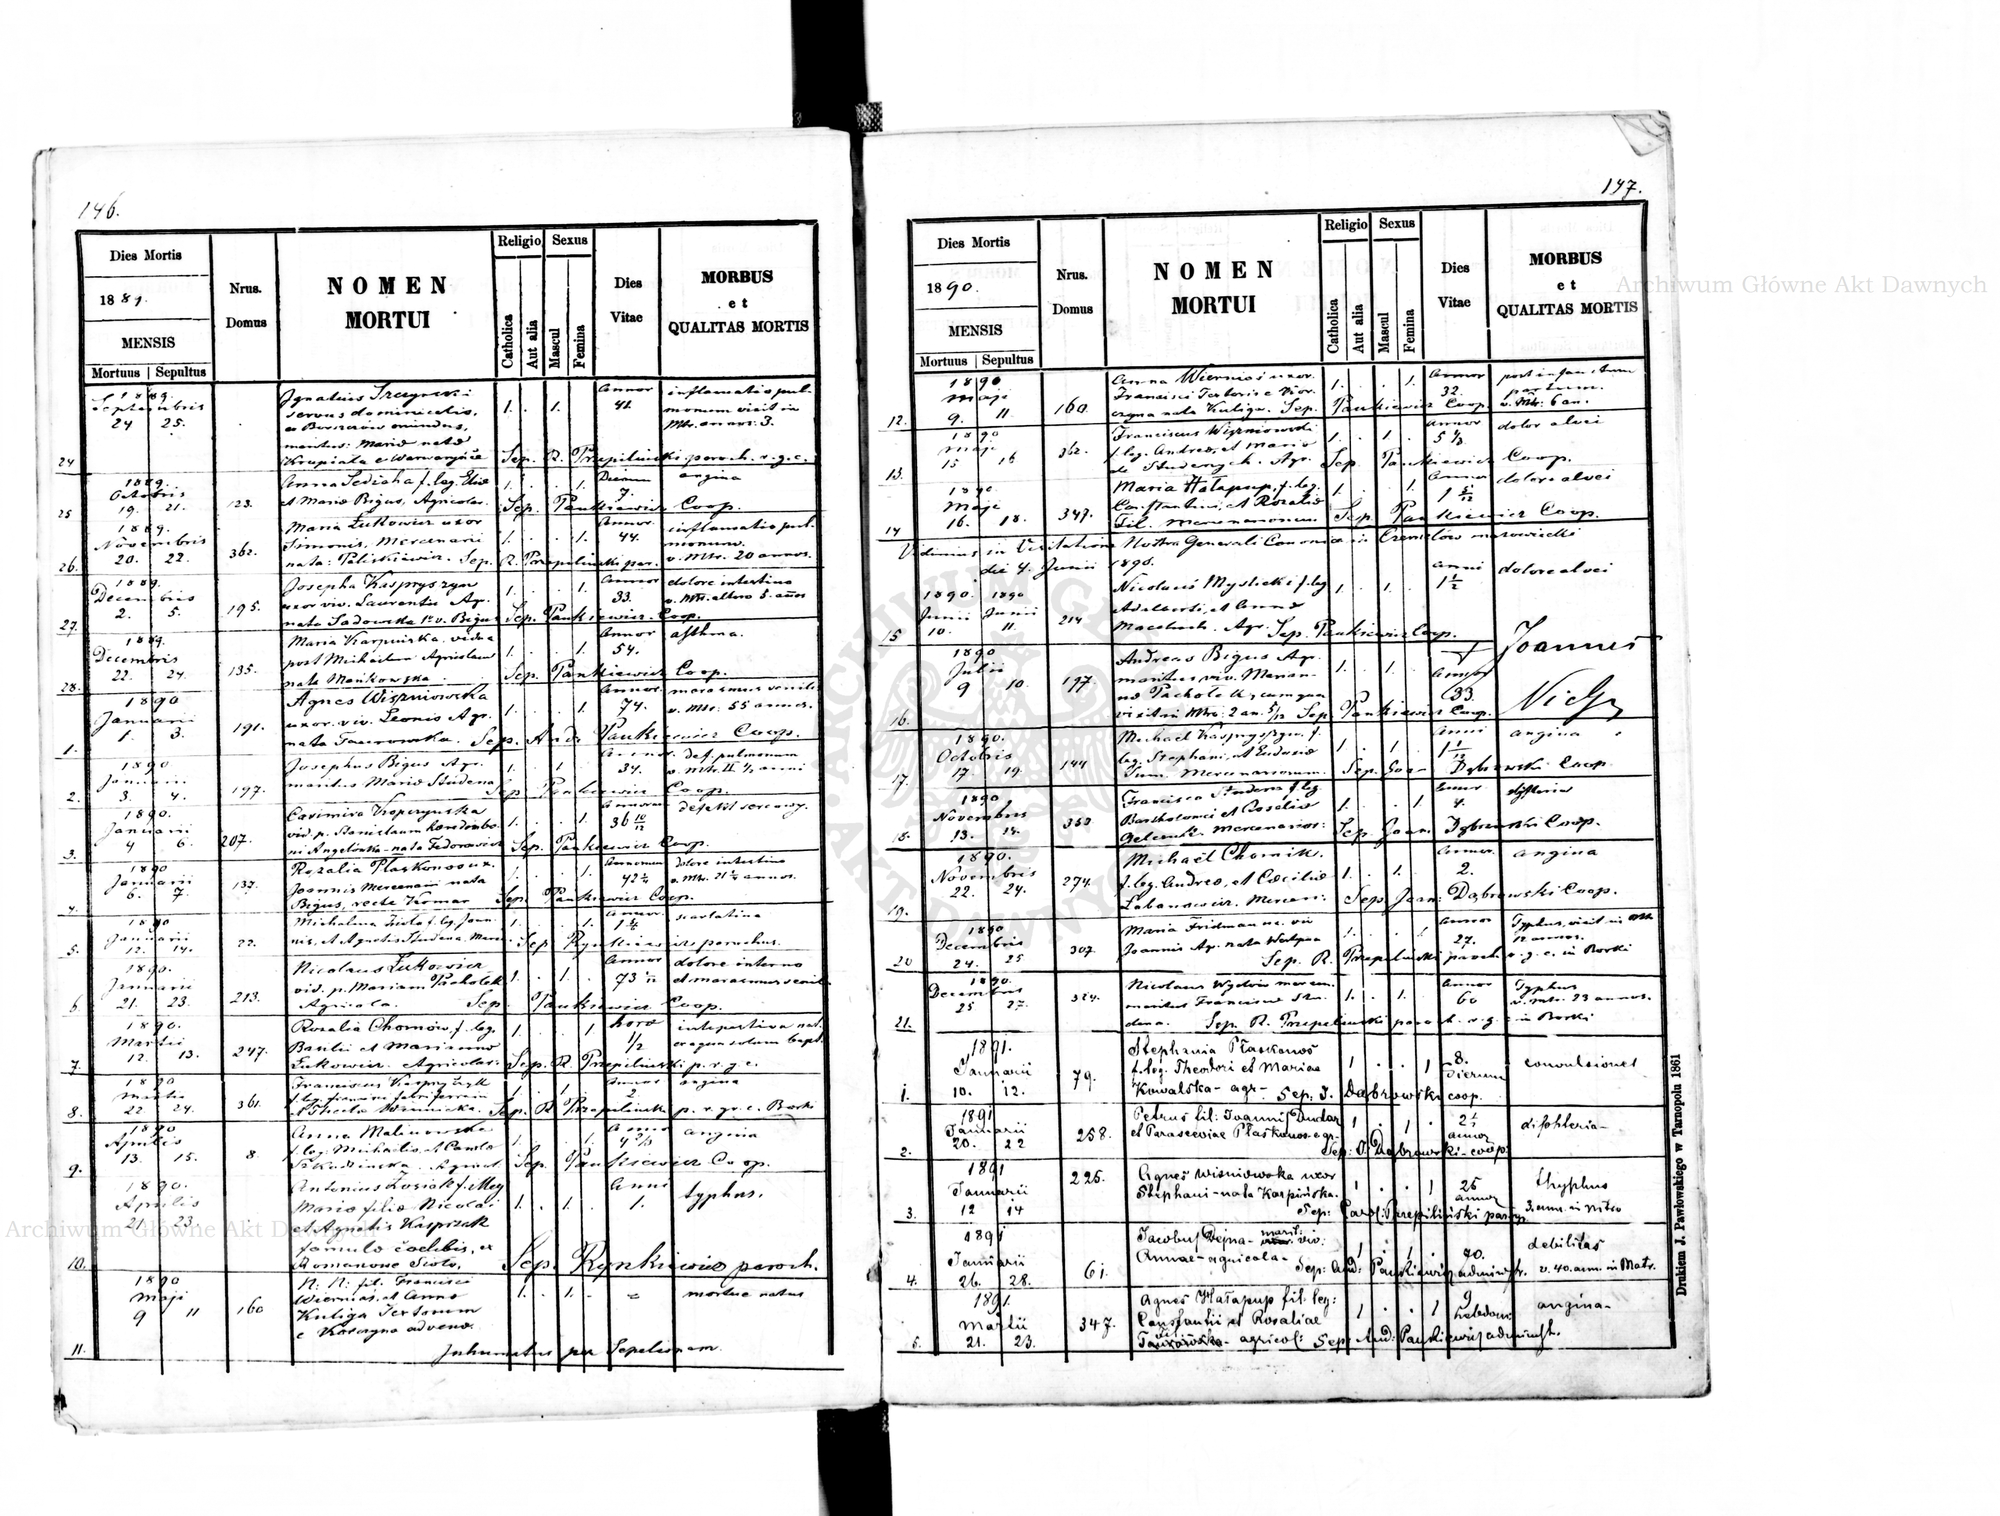 146.
Dies Mortis
1889.
MENSIS
Mortuus | Sepultus
Nrus.
Domus
NOMEN
MORTUI
Religio
Catholica
Aut alia
Sexus
Mascul
Femina
Dies
Vitae
MORBUS
et
QUALITAS MORTIS
24
1889.
Septembris
24 25.
Ignatius
servus dominicalis,
e Borszczów oriundus,
maritus Mariae natae
1. 1.
Annor
41.
inflamatio pul-
monum vixit in
Mtr. annos. 3.
Sep. R. Przepiliński paroch. r. g. c.
25
1889.
Octobris
19. 21.
123.
Anna f. leg. Eliae
et Mariae Bigus, Agricolar.
1. 1.
Dierum
7.
angina
Sep. Pankiewicz Coop.
26.
1889.
Novembris
20. 22.
362.
Maria Łukowicz uxor
Simonis, Mercenarii
nata: Paliskiewicz. Sep. R. Przepiliński par.
1. 1.
Annor.
44.
inflamatio pul-
monum.
v. Mtr. 20 annos.
27.
1889.
Decembris
2. 5.
195.
Josepha Kaspryszyn
uxor viv. Laurentii Agr.
nata Sadowska 1° v. Bigus
1. 1.
Annor
33.
dolore intestino
v. Mtr. altero 5. annos
Sep. Pankiewicz Coop.
28.
1889.
Decembris
22. 24.
135.
Maria Karpińska vidua
post Michaelem Agricolam
nata Mańkowska
1. 1.
Annor
54.
asthma.
Sep. Pankiewicz Coop.
1.
1890
Januarii
1. 3.
191.
Agnes Wiszniowska
uxor. viv. Leonis Agr.
nata Taurowska. Sep. And. Pankiewicz Coop.
1. 1.
Annor.
74.
marasmus senilis
v. Mtr. 55 annos.
2.
1890.
Januarii
3. 4.
197.
Josephus Bigus Agr.
maritus Mariae Studena
1. 1
Annor.
34.
def. pulmonum
Sep. Pankiewicz Coop.
3.
1890.
Januarii
4 6.
207.
Casimira Kopczyńska
vid. p. Stanislaum
nata Fedorowicz
1. 1.
Annorum
36 10/12
defekt sercowy.
Sep. Pankiewicz Coop.
4.
1890
Januarii
6. 7.
137.
Rozalia Płaskonos ux.
Joannis Mercenarii nata
Bigus, recte Komar
1. 1.
Annorum
dolore intestino
Sep. Pankiewicz Coop.
5.
1890
Januarii
12. 14.
22.
Michalina f. leg. Joan-
nis, et Agnetis Studena. Mercen.
1. 1.
Annor.
scarlatina
Sep. Rynkiewicz parochus.
6.
1890.
Januarii
21. 23.
213.
Nicolaus Łukowicz
vid. p. Mariam Pachołek
Agricola.
1. 1.
Annor
dolore interno
et marasmus senilis
Sep. Pankiewicz Coop.
7.
1890.
Martii
12. 13.
247.
Rozalia Chomów, f. leg.
Basilii et Marianna
Łukowicz. Agricolar.
1. 1
horae
1/2
intepestiva nat.
ex aqua solum bapt.
Sep. R. Przepiliński p. r. g. c.
8.
1890
Martii
22 24.
361.
Franciscus Kaspryszyn
1. 1.
Annor
2.
angina
Sep. R. Przepiliński p. r. g. c. Borki
9.
1890
Aprilis
13. 15.
8.
Anna Malinowska
f. leg. Michaelis, et
1. 1.
Anno
4 2/3
angina
Sep. Pankiewicz Coop.
10.
1890.
Aprilis
21. 23
Antonius f. illeg.
Mariae filiae Nicolai
et Agnetis Kasprzak
famula coelibis, ex
Romanowe Sioło,
1. 1.
Anni
1.
typhus.
Sep. Rynkiewicz paroch.
11.
1890
Maji
9 11
160
N. N. fil. Francisci
Wiernias, et Anna
Kuliga Textorum
e Korczyna advenae.
1. 1.
mortue natus
Inhumatus per Sepelionem.
147.
Dies Mortis
1890.
MENSIS
Mortuus | Sepultus
Nrus.
Domus
NOMEN
MORTUI
Religio
Catholica
Aut alia
Sexus
Mascul
Femina
Dies
Vitae
MORBUS
et
QUALITAS MORTIS
12.
1890
Maji
9. 11.
160.
Anna Wiernias uxor.
Francisci Textoris e Kor-
czyna nata Kuliga. Sep. Pankiewicz Coop.
1. 1.
Annor
32.
post infaustum
partum.
v. Mtr. 6 an.
13.
1890
Maji
15 16
362.
Franciscus Wiszniowski
f. leg. Andreae, et Maria
de Studenych. Agr.
1. 1.
Annor
5 1/3
dolor alvei
Sep. Pankiewicz Coop.
14
1890.
Maji
16. 18.
347.
Maria Hałapup, f. leg.
Constantini, et Rozalia
Fil. Mercenariorum
1. 1.
Annor
1 5/12
dolore alvei
Sep. Pankiewicz Coop.
Vidimus in Visitatione Nostra Generali Canonica in Czernelów mazowiecki
die 4. Junii 1890.
15
1890. 1890
Junii Junii
10. 11.
214
Nicolaus Mysticki f. leg
Adalberti, et Anna
Agr. Sep. Pankiewicz Coop.
1. 1.
Anni
1 1/2
dolore alvei
Joannes
16.
1890
Julii
9 10.
197.
Andreas Bigus Agr.
maritus viv. Marian-
vixit in Mtr. 2 an. 5/12 Sep. Pankiewicz Coop.
1. 1.
Annor
33.
17.
1890.
Octobris
17 19.
144
Michael Kaspryszyn, f.
leg. Stephani, et Eudoxia
Mercenariorum.
1. 1
Anni
1 1/12
angina
Sep. Joan Dąbrowski Coop.
18.
1890
Novembris
13. 14.
350
Francisca Studena f. leg.
Bartholomei et Rosalia
Mercenarior:
1. 1
Annor.
4.
Sep. Joan. Dąbrowski Coop.
19.
1890.
Novembris
22. 24.
274.
Michaël Chomik.
f. leg. Andreae, et Cæcilia
Labanowicz. Mercen:
1. 1.
Annor.
2.
angina
Sep. Joan: Dąbrowski Coop.
20
1890
Decembris
24. 25
307.
Maria Fridman ux. viv
Joannis Agr. nata
1. 1
Annor
27.
Typhus, vixit in mtr.
12 annos.
Sep. R. Przepiliński paroch. r. g. c. in Borki
21.
1890.
Decembris
25 27.
324.
Nicolaus mercen.
maritus Francisca Stu-
dena.
1. 1.
Annor
60
Typhus
v. mtr. 23 annos.
Sep. R. Przepiliński paroch. r. g. c. in Borki
1.
1891.
Januarii
10. 12.
79.
Stephania Płaskonos
f. leg. Theodori et Mariae
Kowalska - agr - Sep: J. Dąbrowski coop.
1 1
8.
Dierum
convulsiones
2.
1891
Januarii
20. 22
258.
Petrus fil: Ioannis Dudar
et Parasceviae Płaskonos agr-
1 1
2 1/2
annor
difhteria-
Sep: J. Dąbrowski - coop.
3.
1891
Januarii
12 14
225.
Agnes Wiśniowska uxor
Stephani - nata Karpińska.
1 1
25
annor
thyphus
3. ann. in mtro
Sep: Carol: Przepiliński paroch
4.
1891
Januarii
26. 28.
61.
Iacobus Dejna - marit: viv:
Annae - agricola -
1 1
70.
debilitas
v. 40. ann. in Matr.
Sep: And: Pankiewicz administr.
5.
1891.
Martii
21. 23.
347.
Agnes Hałapup fil: leg:
Constantii et Rosaliae
agricol: Sep: And: Pankiewicz administr.
1 1
9
hebdom:
angina-
Drukiem J. Pawłowskiego w Tarnopolu 1861
Archiwum Główne Akt Dawnych
Archiwum Główne Akt Dawnych
ARCHIWUM GŁÓWNE AKT DAWNYCH